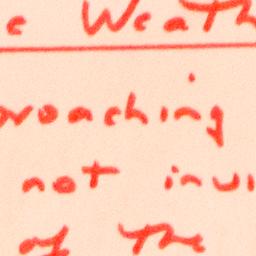 e Weath
roaching
not invi
of the